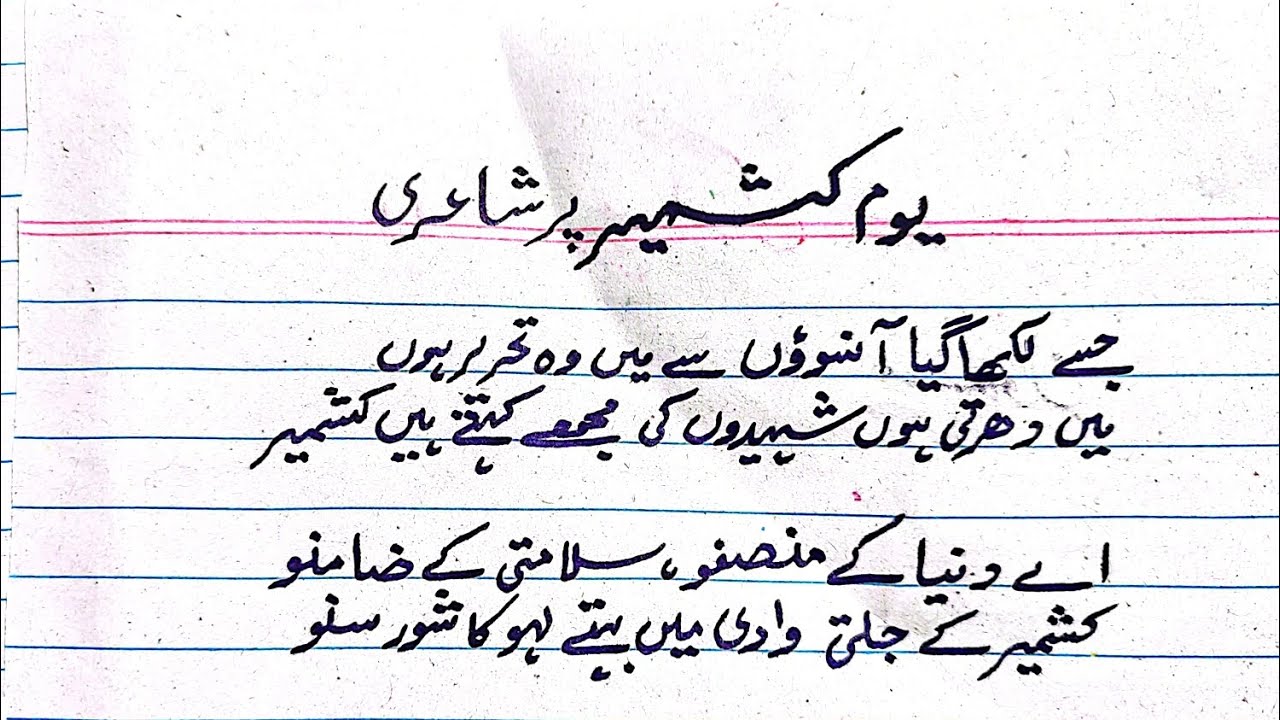 یوم کشمیر پر شاعری
جسے لکھا گیا آنسوؤں سے میں وہ تحریر ہوں
میں دھرتی ہوں شہیدوں کی مجھے کہتے ہیں کشمیر
اے دنیا کے منصفو، سلامتی کے ضامنو
کشمیر کے جلتی وادی میں بہتے لہو کا شور سنو